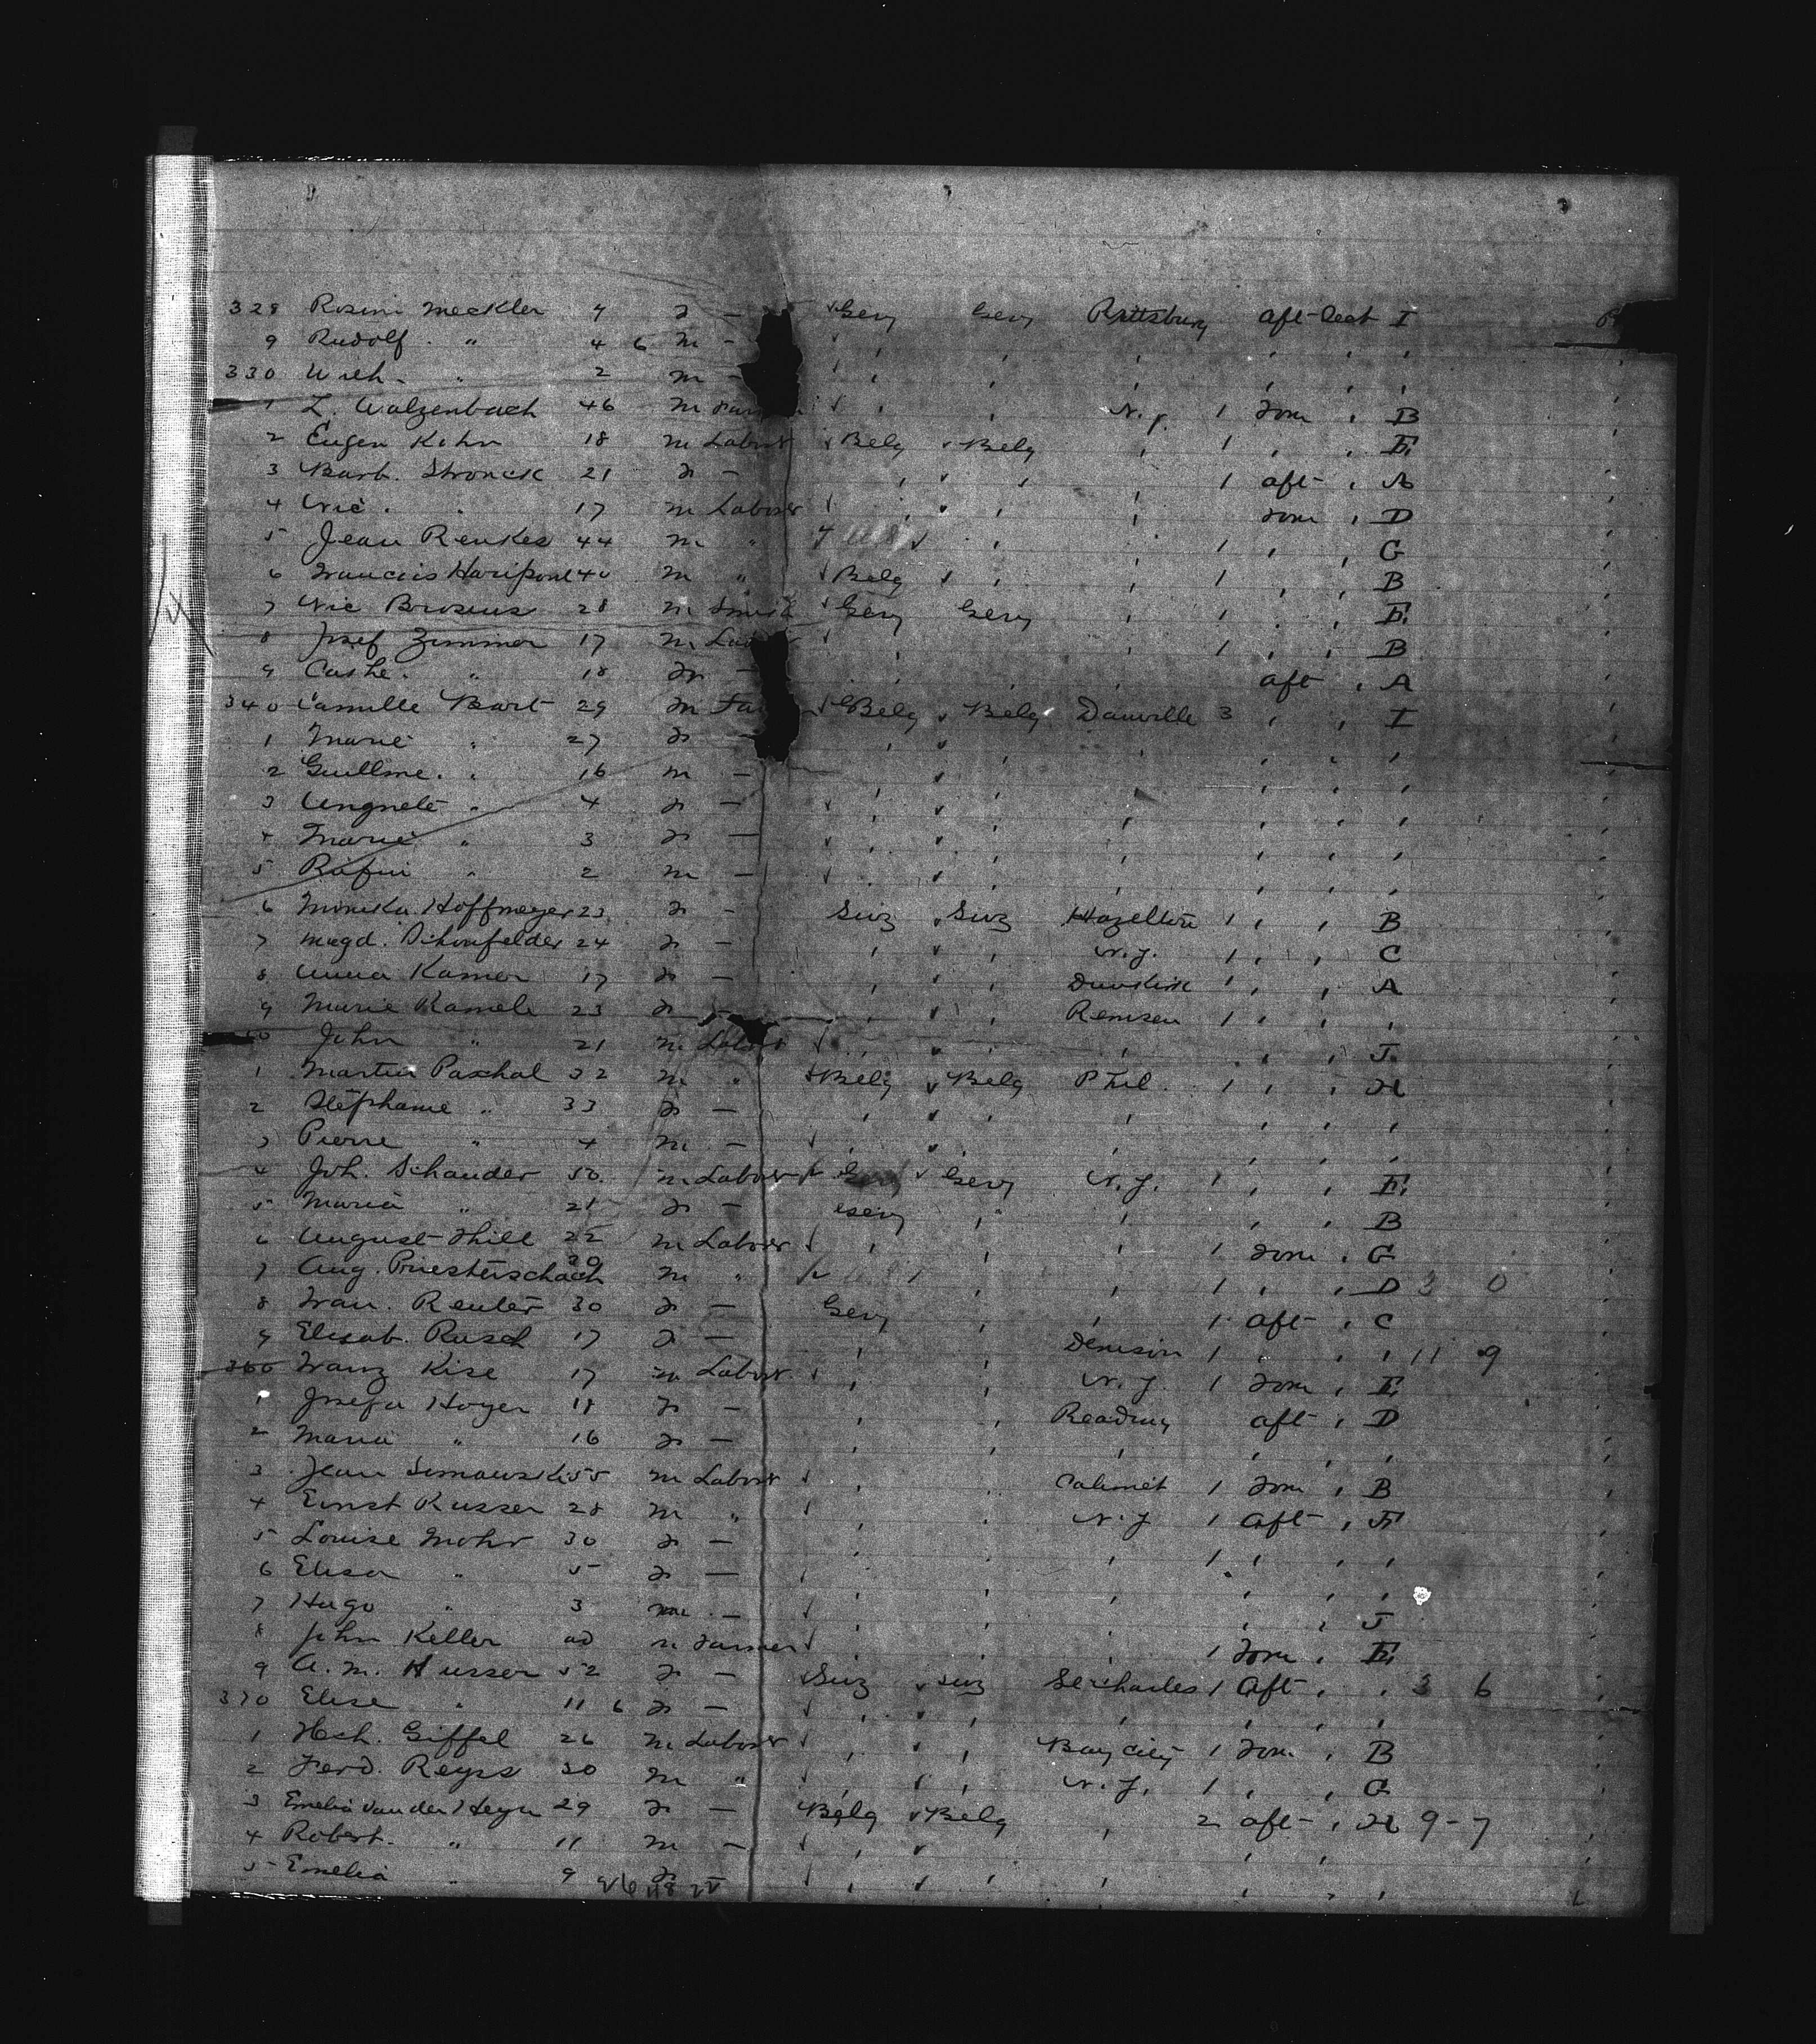 328 Rosini Meckler 9 F — Gery Gery Pittsburg aft-Deck I
9 Rudolf " 4 6 m —
330 Wilh. " 2 m —
1 L. Walzenbach 46 m N.Y. 1 Form , B
2 Eugen Kohn 18 m Labour Belg Belg , 1 , , E
3 Barb. Stronck 21 F — , , , 1 aft , A
4 Nic. " 17 m Labour , , , Form , D
5 Jean Renkes 44 m " , , 1 , , G
6 Francois Haripont 40 m " Belg , , 1 , , B
7 Nic Brosius 28 m Smith Gery Gery , 1 , , E
8 Josef Zimmer 17 m , , , 1 , , B
9 Cathe. " 18 F — , , , aft , A
340 Camille Bart 29 m Belg Belg Danville 3 , , I
1 Marie " 27 F
2 Guillme. " 16 m —
3 " 4 F —
4 Marie " 3 F —
5 " 2 m —
6 Hoffmeyer 23 F — Swz Swz Hazelton 1 , , B
7 Magd. Schonfelder 24 F — , , N.Y. 1 , , C
8 Anna Kamer 17 F — , , Dunkirk 1 , , A
9 Marie Kamele 23 F — , , Remsen 1 , , ,
50 John " 21 m Labour , , , , , J
1 Martin Paschal 32 m " Belg Belg Phil. 1 , , H
2 Stephanie " 33 F —
3 Pierre " 4 m —
4 Joh. Schauder 50 m Labour Gery N.Y. 1 , , E
5 Maria " 21 F — Gery , , , , B
6 August Thill 22 m Labour , , , 1 Form , G
7 Aug. Priesterschach 30 m " , , 1 , , D 3 0
8 Fran. Reuter 30 F — Gery , , 1 aft , C
9 Elisab. Rusch 17 F — , , Denison 1 , , , 11 9
360 Franz Kise 17 m Labour , , N.Y. 1 Form , E
1 Josefa Hoyer 18 F — , , Reading aft , D
2 Maria " 16 F —
3 Jean 55 m Labour , , Calumet 1 Form , B
4 Ernst Kusser 28 m " , , N.Y 1 Aft , F
5 Louise Mohr 30 F — , , , 1 , , ,
6 Elisa " 5 F —
7 Hugo " 3 m — , , , , , J
8 John Keller 20 m Farmer , , , 1 Form , E
9 A. M. Husser 52 F — Swz Swz St Charles 1 Aft , , 3 6
370 Elise " 11 6 F —
1 Hch. Giffel 26 m Labour , , Bay City 1 Form , B
2 Ferd. Reyss 30 m " , , N.Y. 1 , , G
3 Emelia van der Heyn 29 F — Belg Belg , 2 aft , H 9-7
4 Robert. " 11 m —
5 Emelia " 9 F —